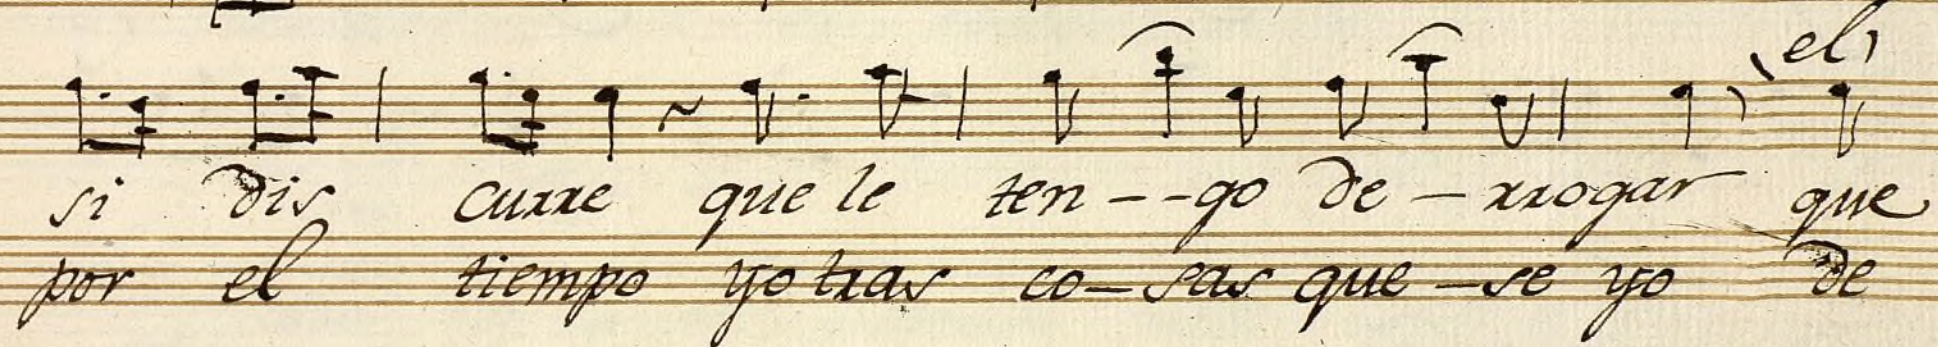 el
si dis curre que le ten - - go de - rrogar que
por el tiempo yotras co - sas que - se yo de